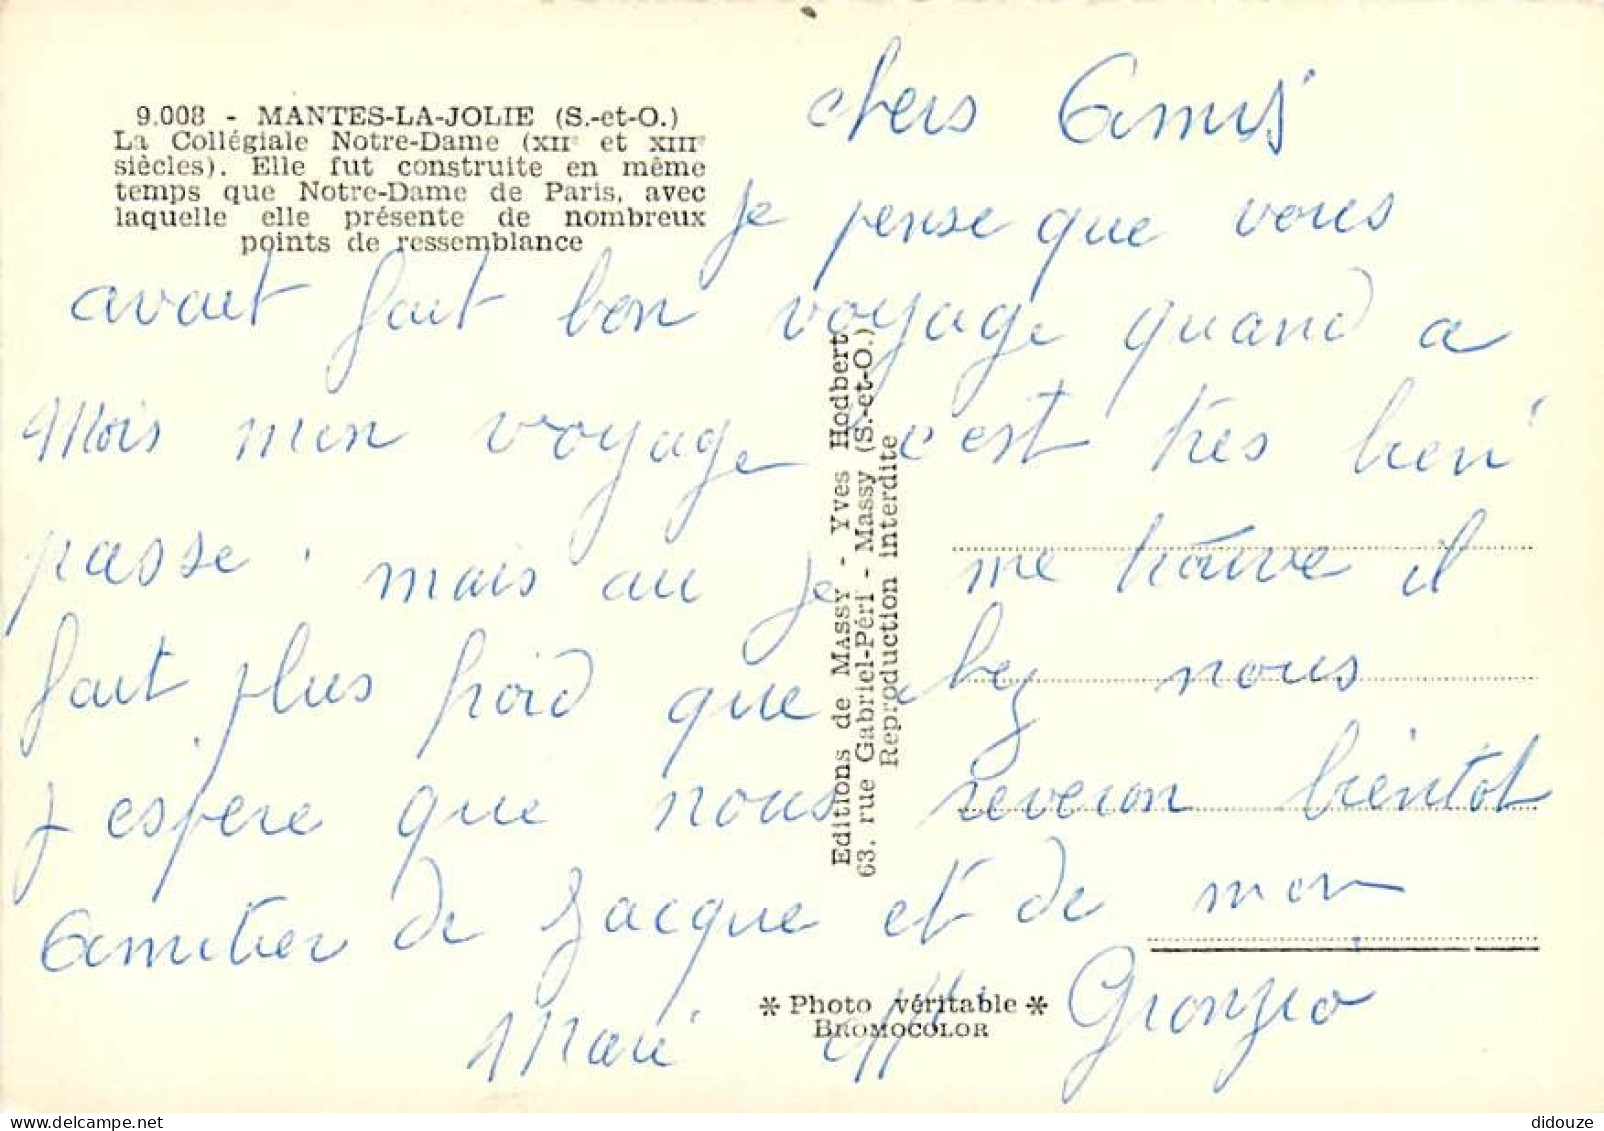 9.008 - MANTES-LA-JOLIE (S.-et-O.)
La Collégiale Notre-Dame (XIIe et XIIIe
siècles). Elle fut construite en même
temps que Notre-Dame de Paris, avec
laquelle elle présente de nombreux
points de ressemblance
chers Amis
je pense que vous
avait fait bon voyage quand a
Mois mon voyage c'est très bien
passe. mais au je me trouve il
fait plus froid que chez nous
j espere que nous reveron bientot
Amitier de Jacque et de mon
Mari Mr Gionzio
Editions de MASSY - Yves Hodbert
63, rue Gabriel-Péri - Massy (S.-et-O.)
Reproduction interdite
* Photo véritable *
BROMOCOLOR
didouze